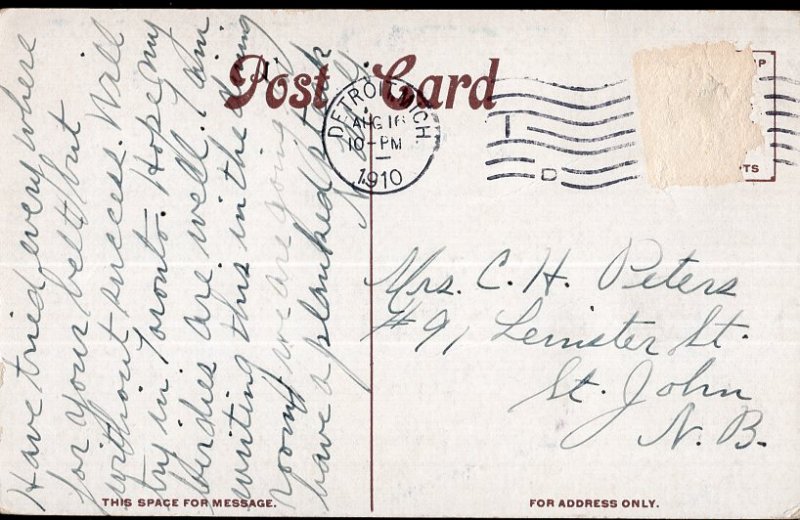 Post Card
DETROIT, MICH.
AUG 16
10-PM
1910
Have tried every where
for your belt but
without success. Will
try in Toronto. Hope my
birdies are well. I am
writing this in the dining
room, we are going to
have a planked steak
Mrs. C. H. Peters
#91, Leinster St.
St. John
N. B.
THIS SPACE FOR MESSAGE.
FOR ADDRESS ONLY.